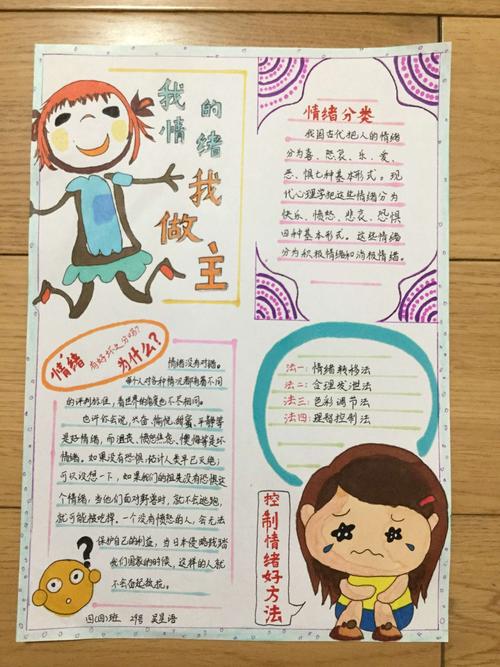 我的
情绪
我
做
主
情绪分类
我国古代把人的情绪
分为喜、怒、哀、乐、爱、
恶、惧七种基本形式。现
代心理学把这些情绪分为
快乐、愤怒、悲哀、恐惧
四种基本形式。这些情绪
分为积极情绪和消极情绪。
情绪有好坏之分吗?
为什么?
情绪没有对错。
每个人对各种情况都有着不同
的评判标准,看世界的角度也不尽相同。
也许你会说,兴奋、愉悦、甜蜜、平静等
是好情绪,而沮丧、愤怒焦虑、懊悔等是坏
情绪。如果没有恐惧,估计人类早已灭绝;
可以设想一下,如果我们的祖是没有恐惧这
个情绪,当他们面对野兽时,就不会逃跑,
就可能被吃掉。一个没有愤怒的人,会无法
保护自己的利益,当日本侵略践踏
我们国家的时候,这样的人就
不会奋起救抗。
?
四(四)班 29号 吴昱语
法一:情绪转移法
法二:合理发泄法
法三:色彩调节法
法四:理智控制法
控制情绪好方法